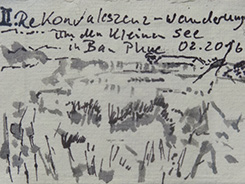 II. Rekonvaleszenz-Wanderung
um den kleinen See
in Ban Phue 02.2016